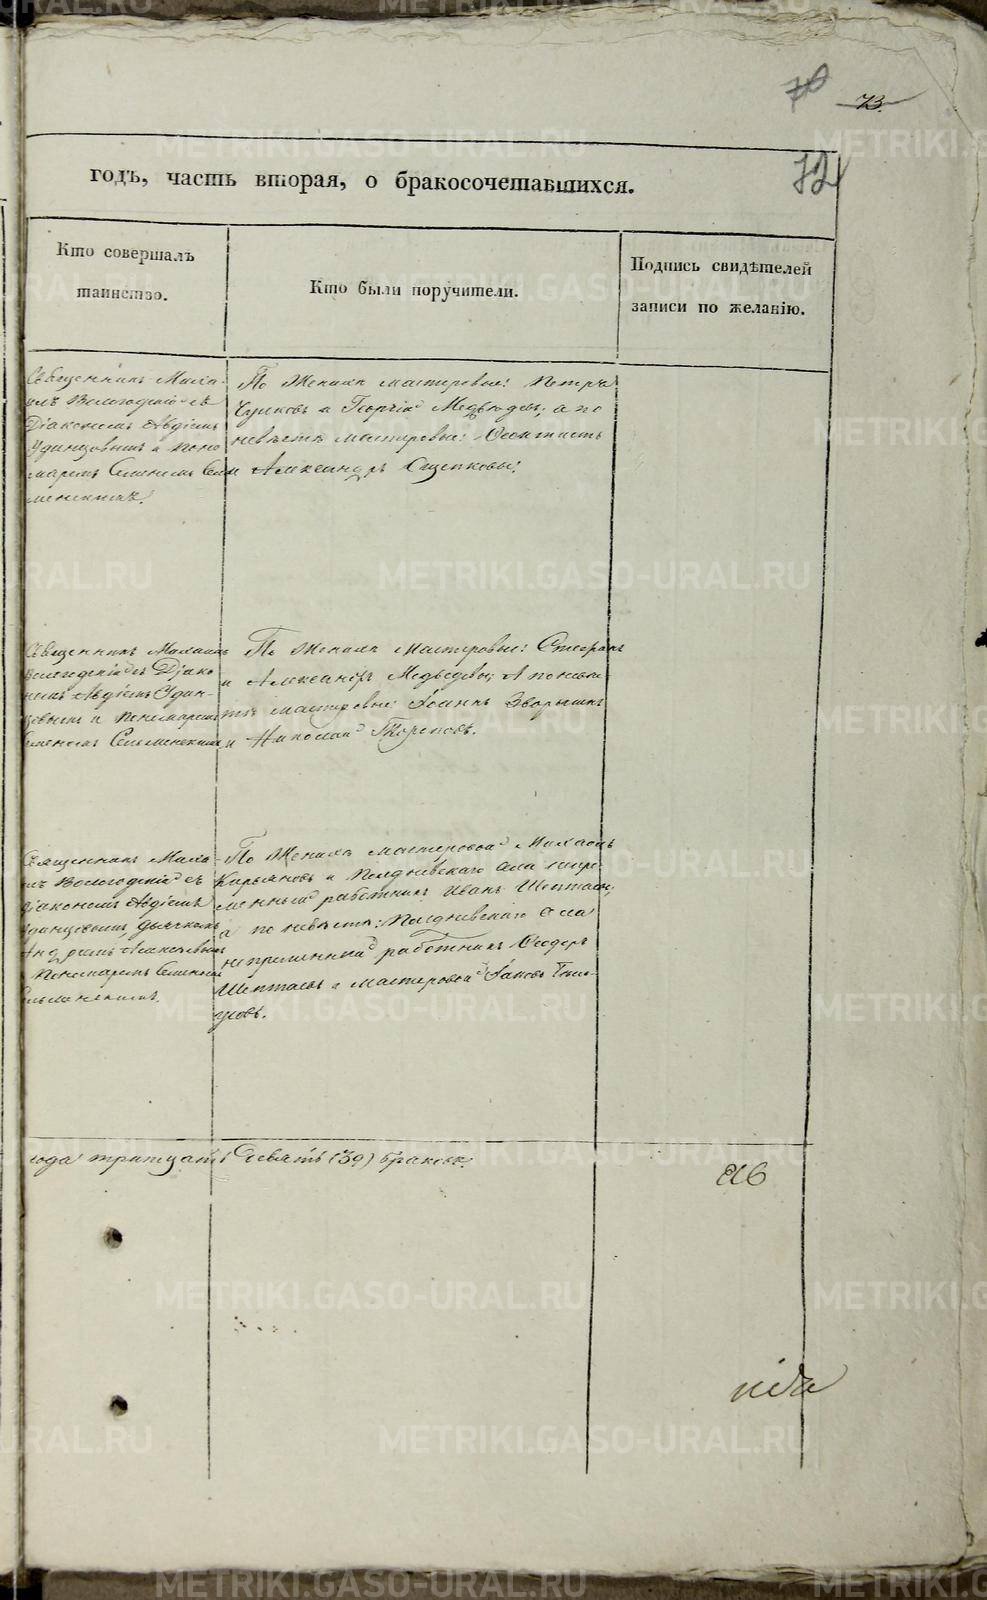 70
73
72
годъ, часть вторая, о бракосочетавшихся.
Кто совершалъ
таинство.
Кто были поручители.
Подпись свидѣтелей
записи по желанію.
Священникъ Миха-
илъ Вологодскій съ
Діакономъ Авдіемъ
Удинцовымъ и Поно
маремъ Семеномъ Сель
менскимъ.
По Женихѣ мастеровые: Петръ
и Георгій Медвѣдевъ; а по
невѣстѣ мастеровые: Феоктистъ
и Александръ Ощепковы.
Священникъ Михаилъ
Вологодскій съ Діако
номъ Авдіемъ Удин-
цовымъ и Пономаремъ
Семеномъ Сельменскимъ
По Женихѣ Мастеровые: Стефанъ
и Александръ Медвѣдевы; А по невѣ
стѣ мастеровые: Іоаннъ
и Николай
Священникъ Миха-
илъ Вологодскій съ
Діакономъ Авдіемъ
Удинцовымъ, дьячкомъ
Андреемъ Алексѣевымъ
Пономаремъ Семеномъ
Сельменскимъ.
По Женихѣ мастеровой Михаилъ
Кирьяновъ и Полдневскаго села непре-
менный работникъ Иванъ Шептаевъ;
а по невѣстѣ: Полдневскаго села
непременный работникъ Феодоръ
Шептаевъ и мастеровой Іаковъ
года тритцать девять (39) браковъ.
METRIKI.GASO-URAL.RU